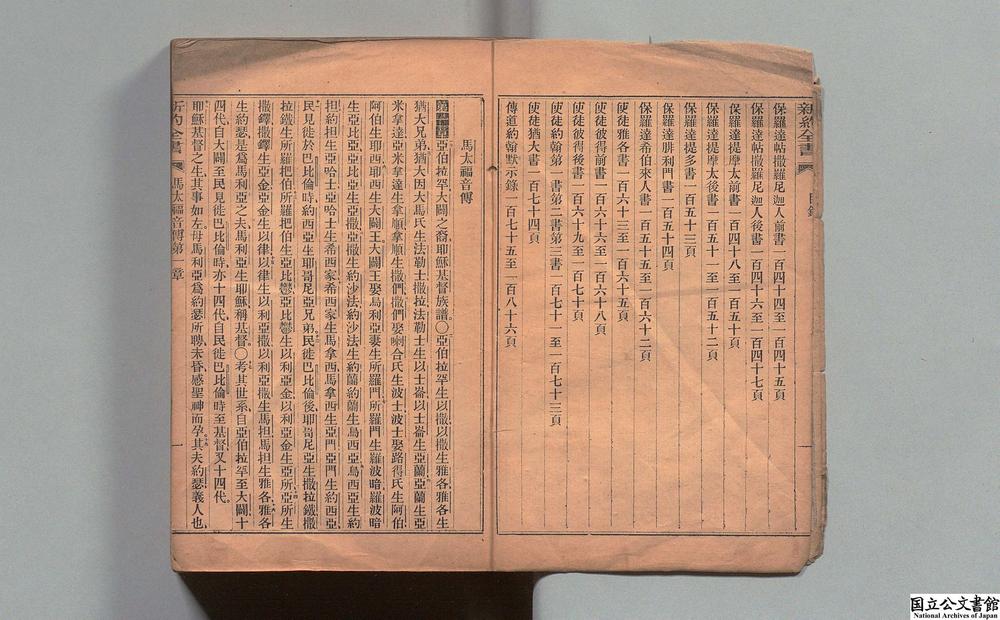 新約全書 目錄
保羅達帖撒羅尼迦人前書 一百四十四至一百四十五頁
保羅達帖撒羅尼迦人後書 一百四十六至一百四十七頁
保羅達提摩太前書 一百四十八至一百五十頁
保羅達提摩太後書 一百五十一至一百五十二頁
保羅達提多書 一百五十三頁
保羅達腓利門書 一百五十四頁
保羅達希伯來人書 一百五十五至一百六十二頁
使徒雅各書 一百六十三至一百六十五頁
使徒彼得前書 一百六十六至一百六十八頁
使徒彼得後書 一百六十九至一百七十頁
使徒約翰第一書第二書第三書 一百七十一至一百七十三頁
使徒猶大書 一百七十四頁
傳道約翰默示錄 一百七十五至一百八十六頁
馬太福音傳
亞伯拉罕大闢之裔耶穌基督族譜○亞伯拉罕生以撒以撒生雅各雅各生
猶大兄弟猶大因大馬氏生法勒士撒拉法勒士生以士崙以士崙生亞蘭亞蘭生亞
米拿達亞米拿達生拿順拿順生撒們撒們娶喇合氏生波士波士娶路得氏生阿伯
阿伯生耶西耶西生大闢王大闢王娶烏利亞妻生所羅門所羅門生羅波暗羅波暗
生亞比亞亞比亞生亞撒亞撒生約沙法約沙法生約蘭約蘭生烏西亞烏西亞生約
担約担生亞哈士亞哈士生希西家希西家生馬拿西馬拿西生亞門亞門生約西亞
民見徙於巴比倫時約西亞生耶哥尼亞兄弟民徙巴比倫後耶哥尼亞生撒拉鐵撒
拉鐵生所羅把伯所羅把伯生亞比鬱亞比鬱生以利亞金以利亞金生亞所亞所生
撒鐸撒鐸生亞金亞金生以律以律生以利亞撒以利亞撒生馬担馬担生雅各雅各
生約瑟是為馬利亞之夫馬利亞生耶穌稱基督○考其世系自亞伯拉罕至大闢十
四代自大闢至民見徙巴比倫時亦十四代自民徙巴比倫時至基督又十四代
耶穌基督之生其事如左母馬利亞為約瑟所聘未昏感聖神而孕其夫約瑟義人也
新約全書 馬太福音傳第一章 一
国立公文書館
National Archives of Japan